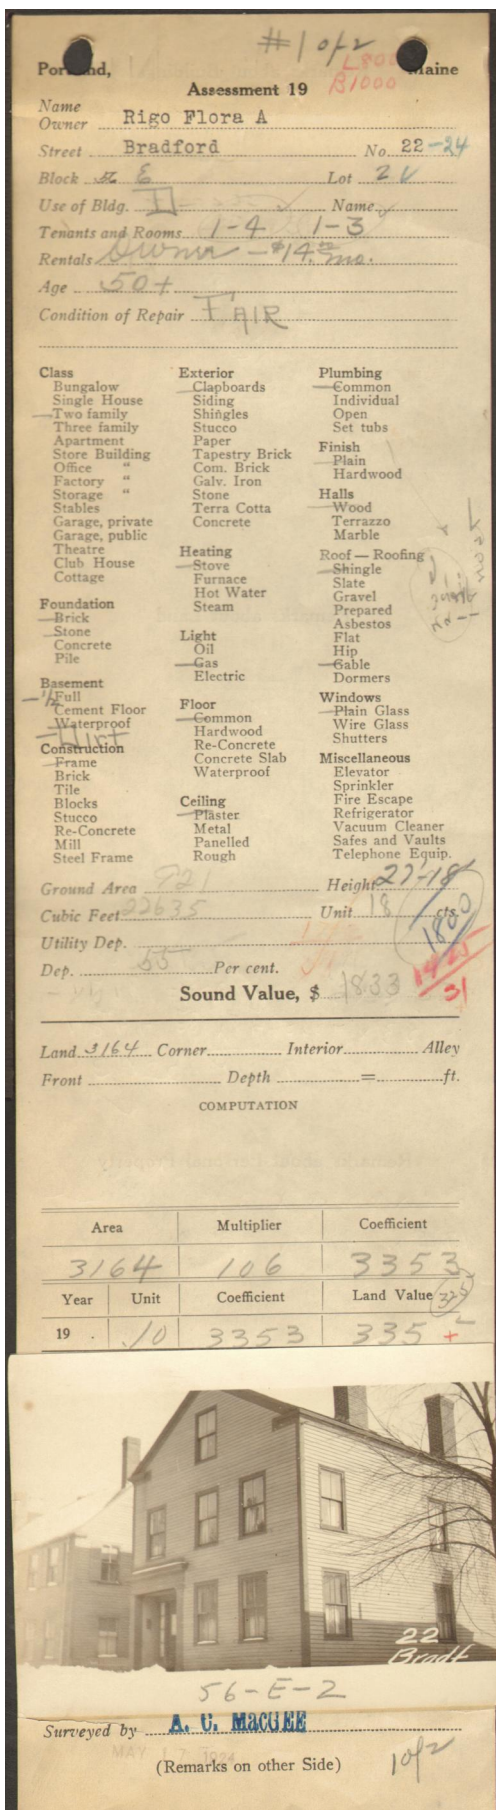 #1 of 2
L800
B1000
Portland, Maine
Assessment 19
Name
Owner Rigo Flora A
Street Bradford No. 22-24
Block E Lot 2
Use of Bldg. Name
Tenants and Rooms 1-4 1-3
Rentals Owner - $14.00 mo.
Age 50+
Condition of Repair FAIR
Class
Bungalow
Single House
Two family
Three family
Apartment
Store Building
Office "
Factory "
Storage "
Stables
Garage, private
Garage, public
Theatre
Club House
Cottage
Foundation
Brick
Stone
Concrete
Pile
Basement
-1/2 Full
Cement Floor
Waterproof
Dirt
Construction
Frame
Brick
Tile
Blocks
Stucco
Re-Concrete
Mill
Steel Frame
Exterior
Clapboards
Siding
Shingles
Stucco
Paper
Tapestry Brick
Com. Brick
Galv. Iron
Stone
Terra Cotta
Concrete
Heating
Stove
Furnace
Hot Water
Steam
Light
Oil
Gas
Electric
Floor
Common
Hardwood
Re-Concrete
Concrete Slab
Waterproof
Ceiling
Plaster
Metal
Panelled
Rough
Plumbing
Common
Individual
Open
Set tubs
Finish
Plain
Hardwood
Halls
Wood
Terrazzo
Marble
Roof — Roofing
Shingle
Slate
Gravel
Prepared
Asbestos
Flat
Hip
Gable
Dormers
Windows
Plain Glass
Wire Glass
Shutters
Miscellaneous
Elevator
Sprinkler
Fire Escape
Refrigerator
Vacuum Cleaner
Safes and Vaults
Telephone Equip.
Ground Area 921 Height 27-18
Cubic Feet 22635 Unit 18 cts.
1800
Utility Dep.
1425
Dep. 55 Per cent.
31
Sound Value, $ 1833
Land 3164 Corner Interior Alley
Front Depth = ft.
COMPUTATION
Area Multiplier Coefficient
3164 106 3353
Year Unit Coefficient Land Value 325
19 . .10 3353 335 +
22
Bradf
56-E-2
Surveyed by A. C. MacGEE
MAY 17 1924
(Remarks on other Side)
1 of 2